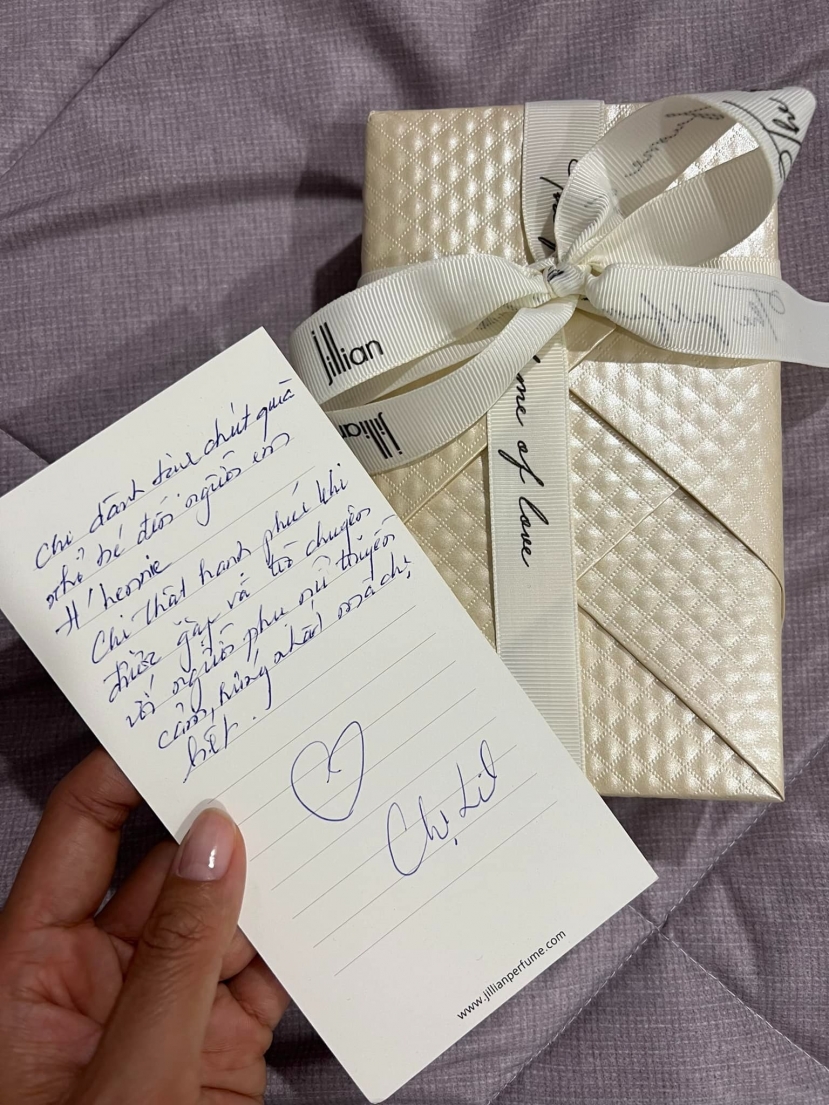 Chị dành tặng chút quà
nhỏ bé đến người em
Chị thật hạnh phúc khi
được gặp và trò chuyện
với người phụ nữ truyền
cảm hứng nhất mà chị
biết.
Chị Lil
www.jillianperfume.com
jillian
jillian
me of love